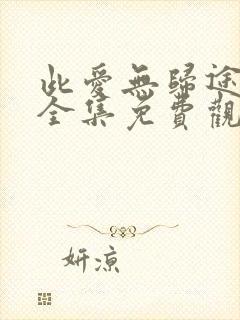 此愛無歸途
全集免費觀
妍涼